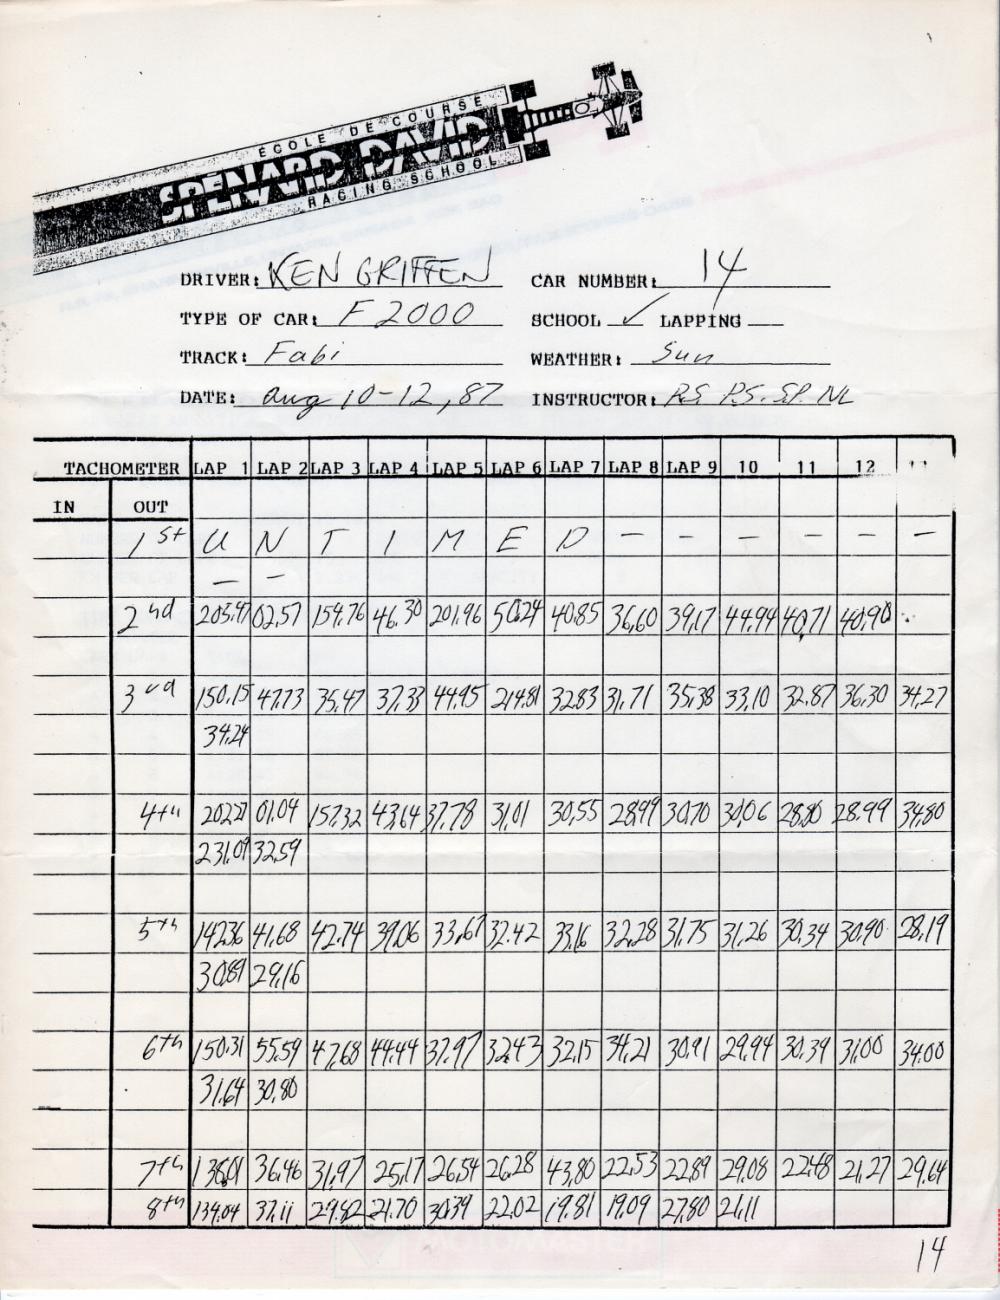 ÉCOLE DE COURSE
SPENARD DAVID
RACING SCHOOL
DRIVER: KEN GRIFFEN CAR NUMBER: 14
TYPE OF CAR: F2000 SCHOOL ✓ LAPPING
TRACK: Fabi WEATHER: Sun
DATE: aug 10-12, 87 INSTRUCTOR: R.S. P.S. S.P. NL
TACHOMETER LAP 1 LAP 2 LAP 3 LAP 4 LAP 5 LAP 6 LAP 7 LAP 8 LAP 9 10 11 12
IN OUT
1st U N T I M E D - - - - - -
- -
2nd 205.47 02.57 154.76 46.30 201.96 50.24 40.85 36.60 39.17 44.94 40.71 40.90
3rd 150.15 47.73 35.47 37.33 44.95 214.81 32.83 31.71 35.38 33.10 32.87 36.30 34.27
34.24
4th 202.27 01.04 157.32 43.64 37.78 31.01 30.55 28.99 30.70 30.06 28.80 28.99 34.80
231.09 32.59
5th 142.36 41.68 42.74 39.06 33.67 32.42 33.16 32.28 31.75 31.26 30.34 30.90 28.19
30.89 29.16
6th 150.31 55.59 47.68 44.44 37.97 32.43 32.15 34.21 30.91 29.94 30.39 31.00 34.00
31.64 30.80
7th 138.01 36.46 31.97 25.17 26.54 26.28 43.80 22.53 22.89 29.08 22.48 21.27 29.64
8th 134.04 37.11 29.82 21.70 30.39 22.02 19.81 19.09 27.80 21.11
14
MOTOMASTER